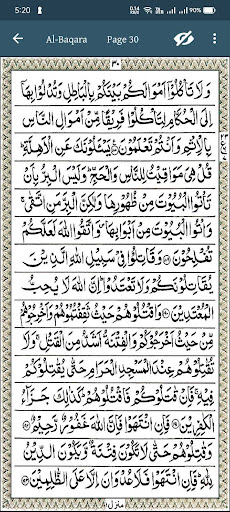 5:20
0.14 KB/S
89
Al-Baqara Page 30
٣٠
وَلَا تَاۡكُلُوۡٓا اَمۡوَالَـكُمۡ بَيۡنَكُمۡ بِالۡبَاطِلِ وَتُدۡلُوۡا بِهَآ
اِلَى الۡحُـکَّامِ لِتَاۡکُلُوۡا فَرِيۡقًا مِّنۡ اَمۡوَالِ النَّاسِ
بِالۡاِثۡمِ وَاَنۡـتُمۡ تَعۡلَمُوۡنَ يَسۡـــَٔلُوۡنَكَ عَنِ الۡاَهِلَّةِ
قُلۡ هِىَ مَوَاقِيۡتُ لِلنَّاسِ وَالۡحَجِّ وَلَيۡسَ الۡبِرُّ بِاَنۡ
تَاۡتُوا الۡبُيُوۡتَ مِنۡ ظُهُوۡرِهَا وَلٰـكِنَّ الۡبِرَّ مَنِ اتَّقٰى
وَاۡتُوا الۡبُيُوۡتَ مِنۡ اَبۡوَابِهَا وَاتَّقُوا اللّٰهَ لَعَلَّکُمۡ
تُفۡلِحُوۡنَ وَقَاتِلُوۡا فِىۡ سَبِيۡلِ اللّٰهِ الَّذِيۡنَ
يُقَاتِلُوۡنَكُمۡ وَلَا تَعۡتَدُوۡا اِنَّ اللّٰهَ لَا يُحِبُّ
الۡمُعۡتَدِيۡنَ وَاقۡتُلُوۡهُمۡ حَيۡثُ ثَقِفۡتُمُوۡهُمۡ وَاَخۡرِجُوۡهُمۡ
مِّنۡ حَيۡثُ اَخۡرَجُوۡكُمۡ وَالۡفِتۡنَةُ اَشَدُّ مِنَ الۡقَتۡلِ وَلَا
تُقٰتِلُوۡهُمۡ عِنۡدَ الۡمَسۡجِدِ الۡحَـرَامِ حَتّٰى يُقٰتِلُوۡكُمۡ
فِيۡهِ فَاِنۡ قٰتَلُوۡكُمۡ فَاقۡتُلُوۡهُمۡ كَذٰلِكَ جَزَآءُ
الۡكٰفِرِيۡنَ فَاِنِ انۡـتَهَوۡا فَاِنَّ اللّٰهَ غَفُوۡرٌ رَّحِيۡمٌ
وَقٰتِلُوۡهُمۡ حَتّٰى لَا تَكُوۡنَ فِتۡنَةٌ وَّيَكُوۡنَ الدِّيۡنُ
لِلّٰهِ فَاِنِ انتَهَوۡا فَلَا عُدۡوَانَ اِلَّا عَلَى الظّٰلِمِيۡنَ
منزل ١